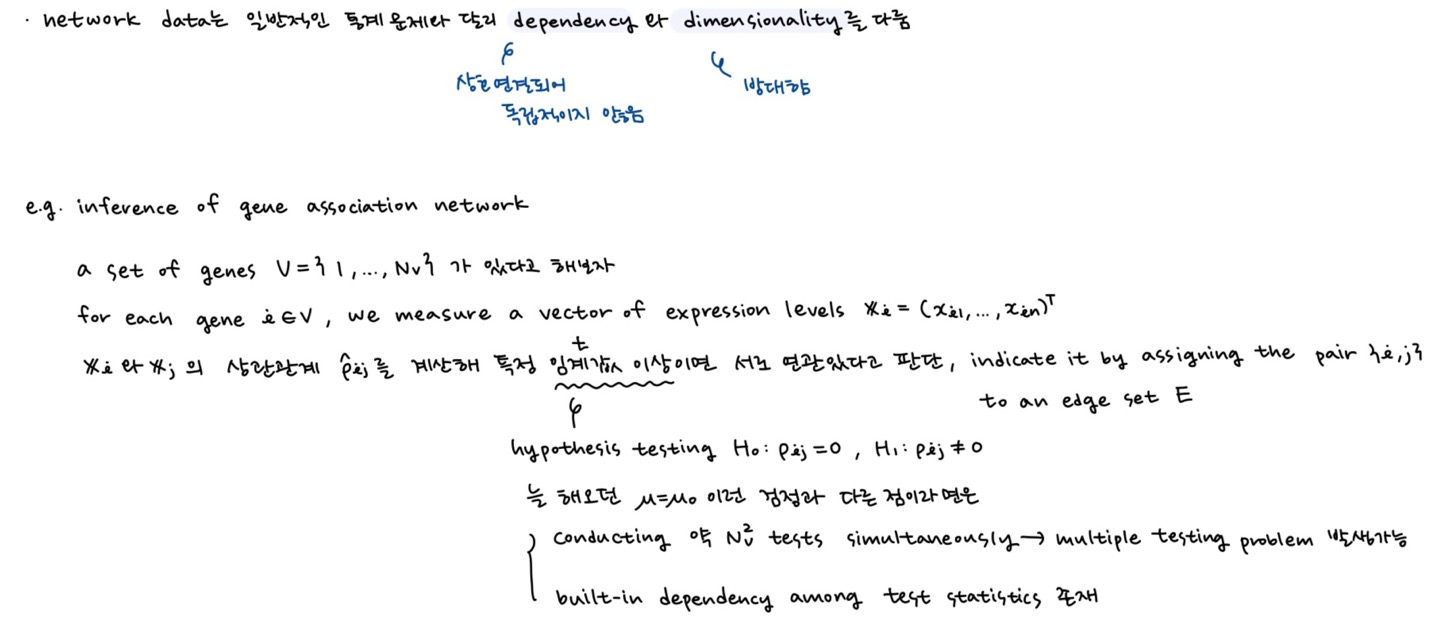 · network data는 일반적인 통계 문제와 달리 dependency 와 dimensionality를 다룸
상호연결되어
독립적이지 않음
방대함
e.g. inference of gene association network
a set of genes V = { 1, ..., Nv } 가 있다고 해보자
for each gene i ∈ V, we measure a vector of expression levels xi = (xi1, ..., xin)ᵀ
t
xi 와 xj 의 상관관계 ρ̂ij를 계산해 특정 임계값 이상이면 서로 연관있다고 판단, indicate it by assigning the pair {i,j}
to an edge set E
hypothesis testing H₀: ρij = 0, H₁: ρij ≠ 0
늘 해오던 μ=μ₀ 이런 검정과 다른 점이라 면은
conducting 약 Nv² tests simultaneously → multiple testing problem 발생가능
built-in dependency among test statistics 존재